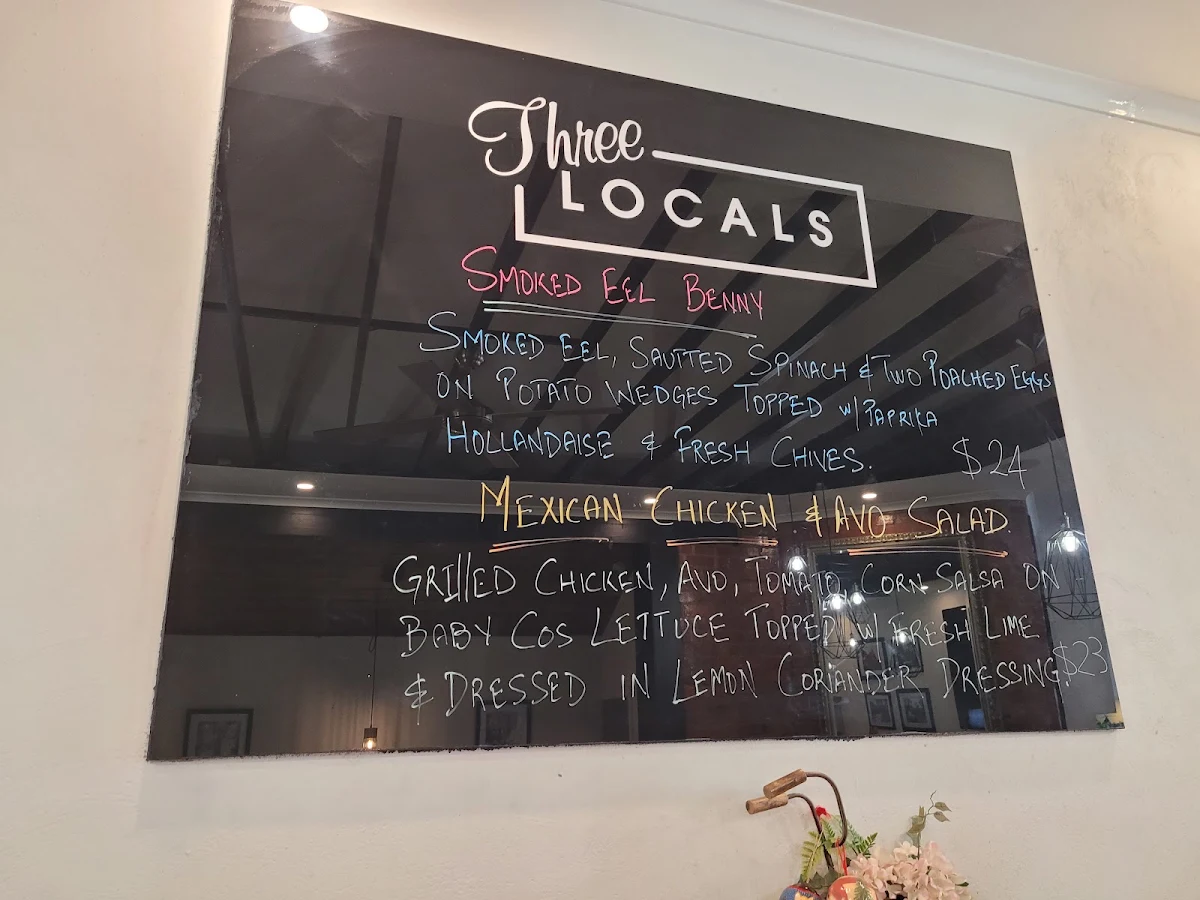 Three
LOCALS
SMOKED EEL BENNY
SMOKED EEL, SAUTTED SPINACH & TWO POACHED EGGS
ON POTATO WEDGES TOPPED W/ PAPRIKA
HOLLANDAISE & FRESH CHIVES. $24
MEXICAN CHICKEN & AVO SALAD
GRILLED CHICKEN, AVO, TOMATO, CORN SALSA ON
BABY COS LETTUCE TOPPED W/ FRESH LIME
& DRESSED IN LEMON CORIANDER DRESSING. $23